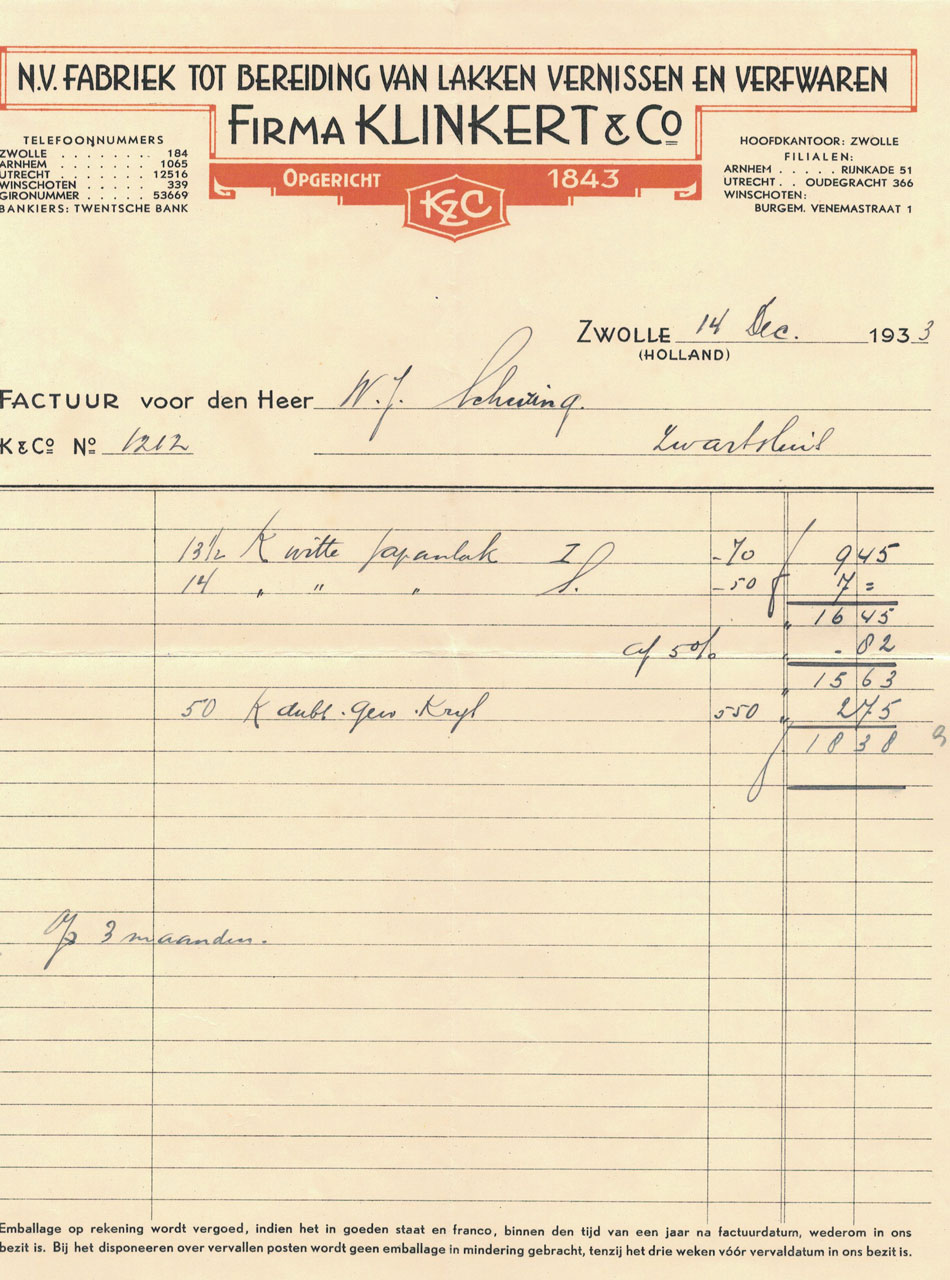 N.V. FABRIEK TOT BEREIDING VAN LAKKEN VERNISSEN EN VERFWAREN
FIRMA KLINKERT & Co
OPGERICHT 1843
KZC
TELEFOONNUMMERS
ZWOLLE . . . . . . . 184
ARNHEM . . . . . . . 1065
UTRECHT . . . . . . 12516
WINSCHOTEN . . . . . 339
GIRONUMMER . . . . . 53669
BANKIERS: TWENTSCHE BANK
HOOFDKANTOOR: ZWOLLE
FILIALEN:
ARNHEM . . . . . RIJNKADE 51
UTRECHT . . OUDEGRACHT 366
WINSCHOTEN:
BURGEM. VENEMASTRAAT 1
ZWOLLE 14 Dec. 1933
(HOLLAND)
FACTUUR voor den Heer W. J.
K & Co No 1212 Zwartsluis
13½ K witte Japanlak I -70 f 945
14 " " " S. -50 7 =
" 16 45
af 5% " - 82
" 15 63
50 K dubb. gew. Kryt 550 " 275
f 18 38
Op 3 maanden.
Emballage op rekening wordt vergoed, indien het in goeden staat en franco, binnen den tijd van een jaar na factuurdatum, wederom in ons
bezit is. Bij het disponeeren over vervallen posten wordt geen emballage in mindering gebracht, tenzij het drie weken vóór vervaldatum in ons bezit is.